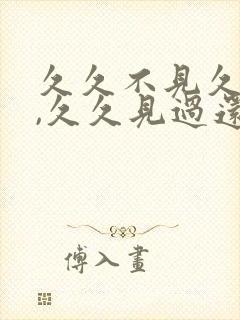 久久不見久
,久久見過還
傅入畫